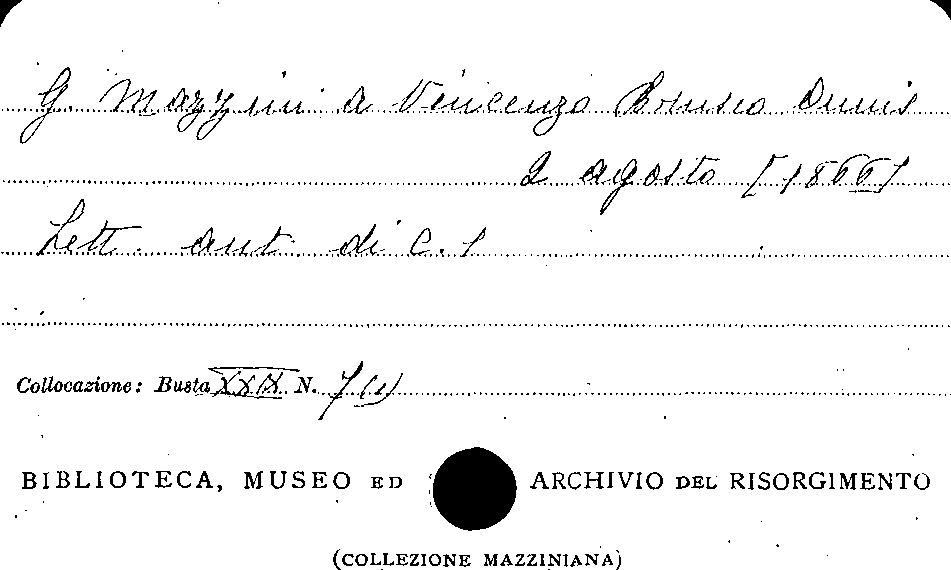 G. Mazzini a Vincenzo Brusco Onnis
2 agosto [1866]
Lett. aut. di c. 1
Collocazione: Busta XXIX N. 7(1)
BIBLIOTECA, MUSEO ED ARCHIVIO DEL RISORGIMENTO
(COLLEZIONE MAZZINIANA)